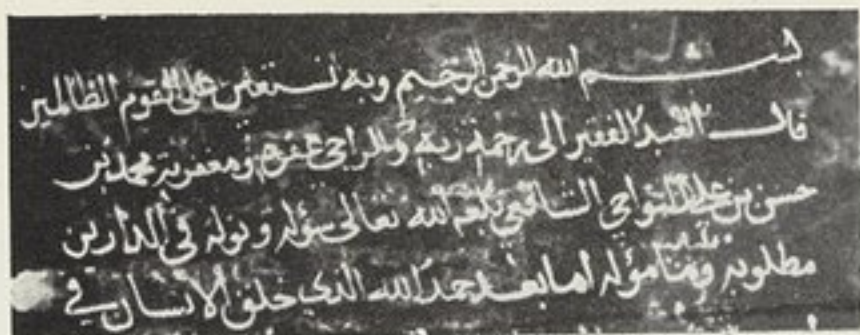 بسم الله الرحمن الرحيم وبه نستعين على القوم الظالمين
قال العبد الفقير الى رحمة ربه والراجي عفوه ومغفرته محمد بن
حسن بن علي النواجي الشافعي بلغه الله تعالى سؤله ونوله في الدارين
مطلوبه ومأموله اما بعد حمدا لله الذي خلق الانسان في